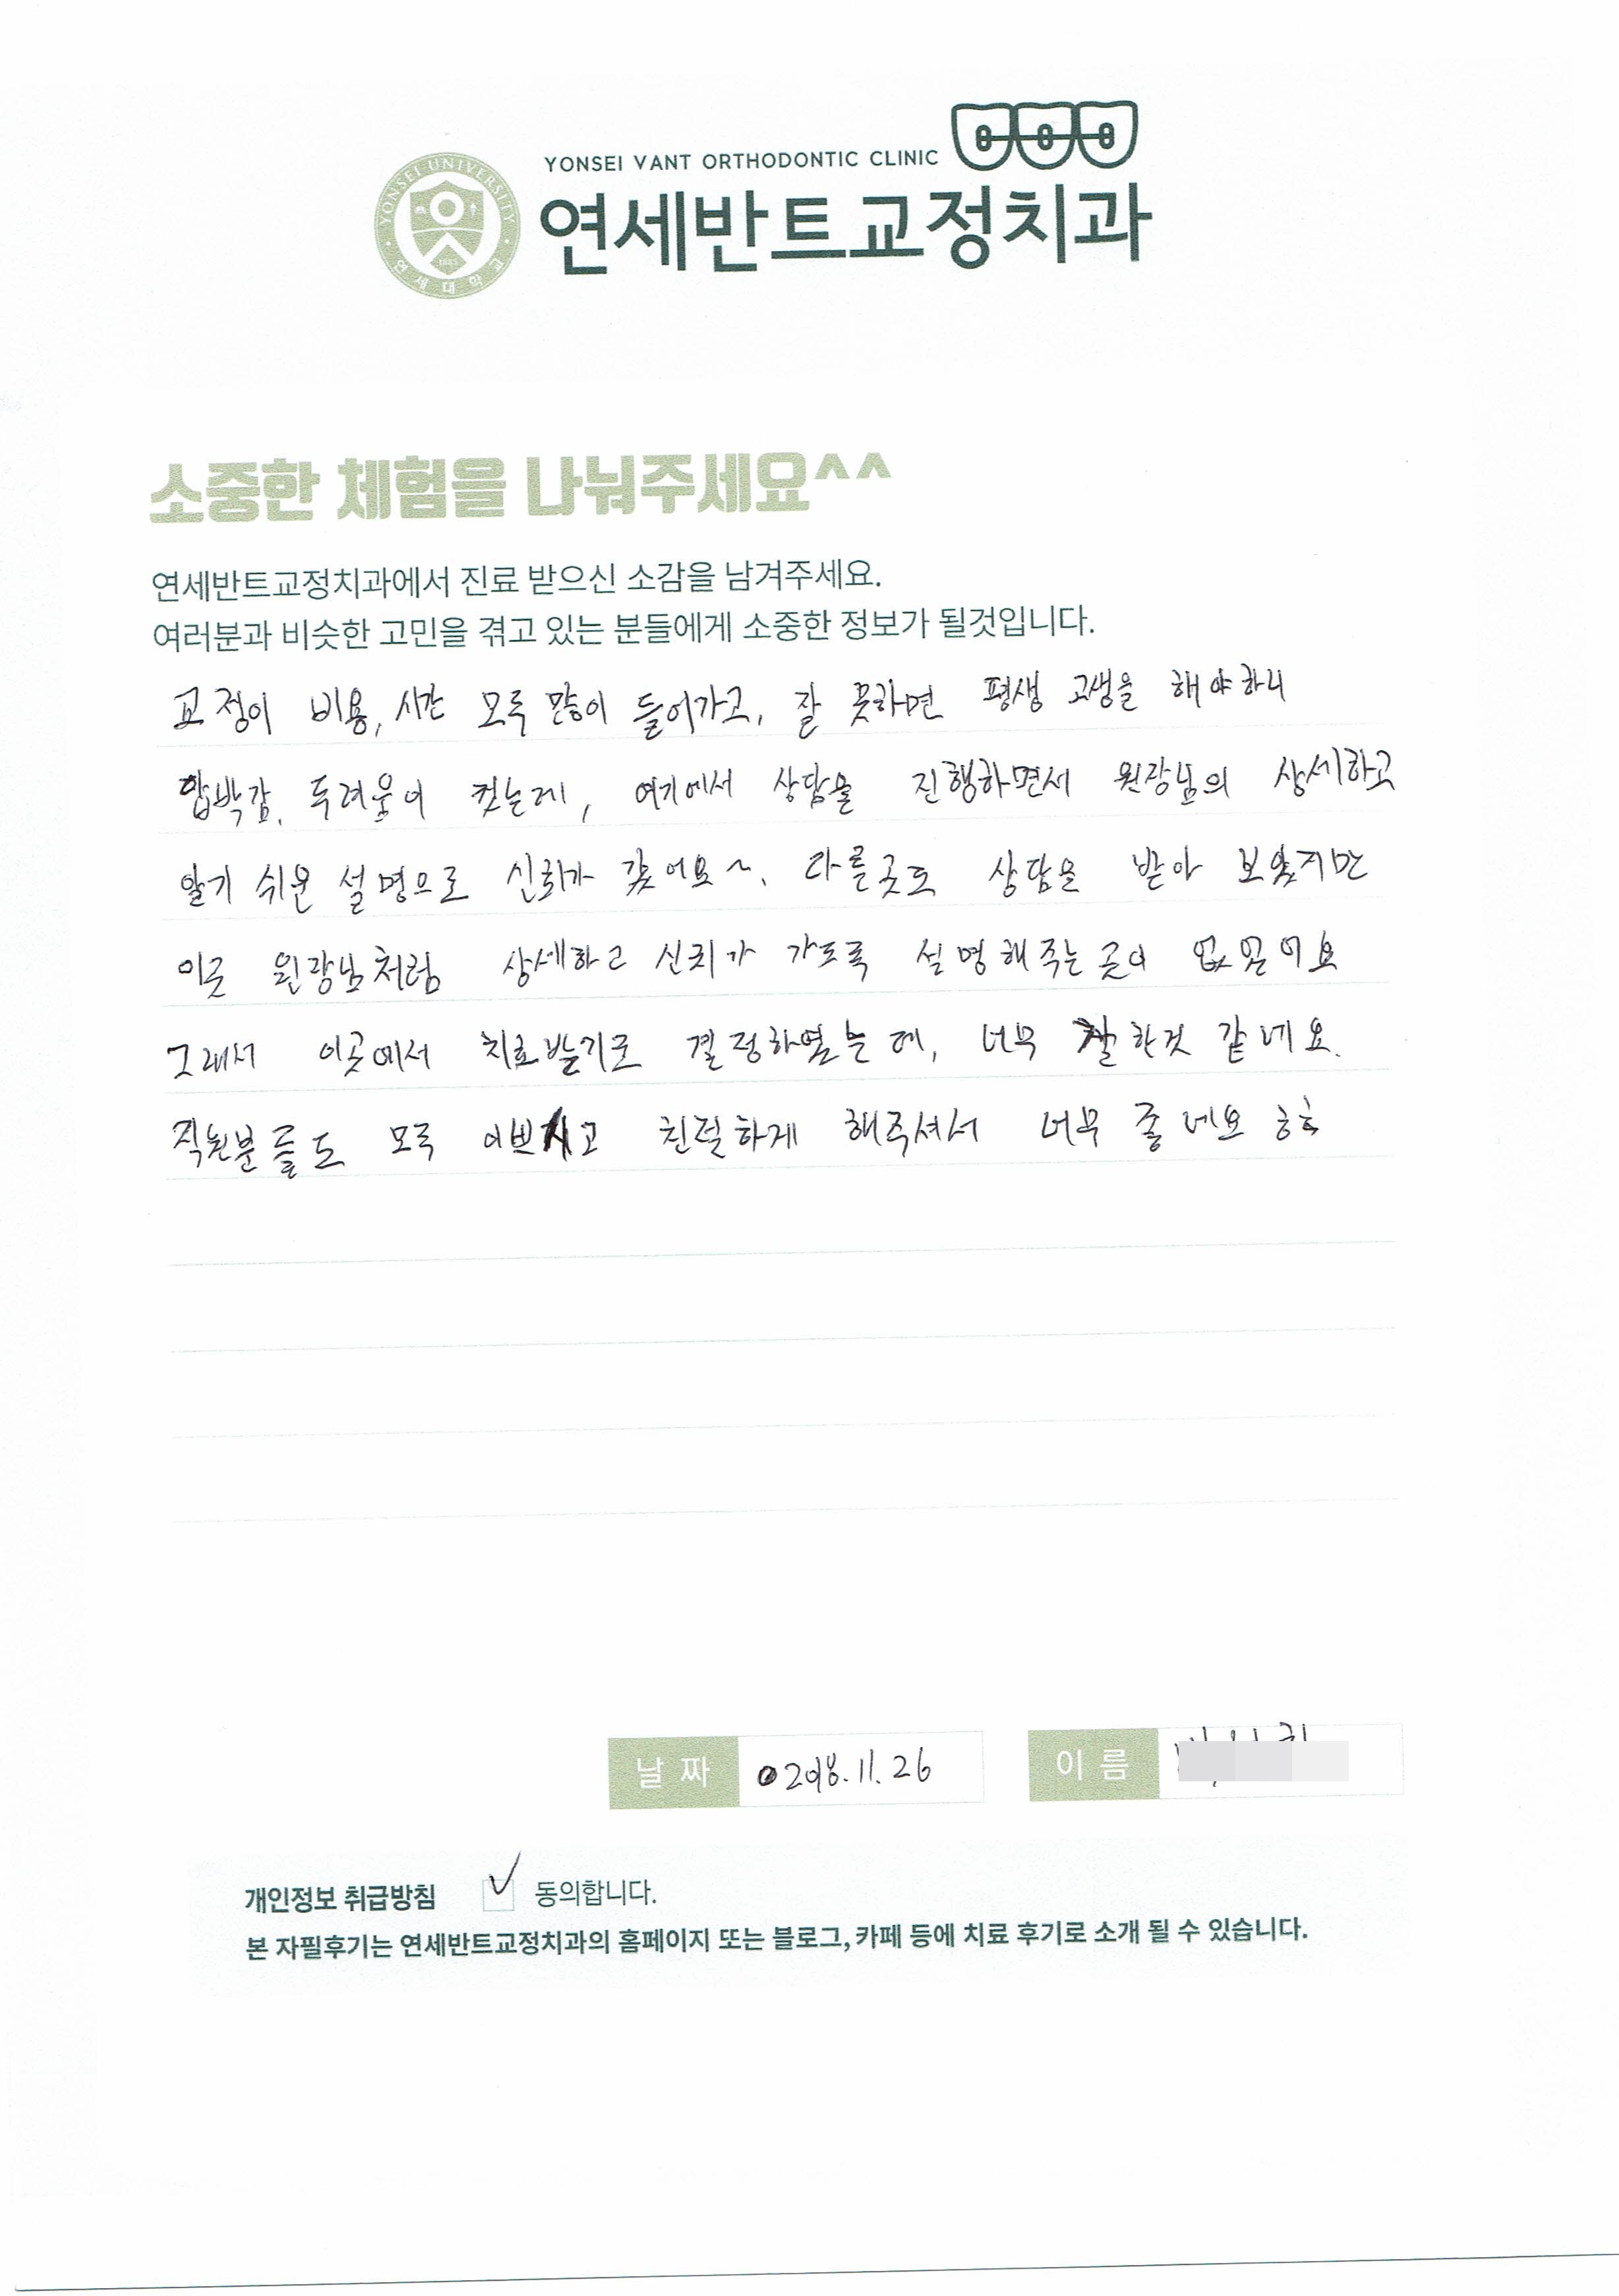 YONSEI VANT ORTHODONTIC CLINIC
연세반트교정치과
YONSEI UNIVERSITY
연세대학교
1885
소중한 체험을 나눠주세요^^
연세반트교정치과에서 진료 받으신 소감을 남겨주세요.
여러분과 비슷한 고민을 겪고 있는 분들에게 소중한 정보가 될것입니다.
교정이 비용, 시간 모두 많이 들어가고, 잘 못하면 평생 고생을 해야하니
압박감, 두려움이 컷는데, 여기에서 상담을 진행하면서 원장님의 상세하고
알기 쉬운 설명으로 신뢰가 갔어요~. 다른곳도 상담을 받아 보았지만
이곳 원장님처럼 상세하고 신뢰가 가도록 설명해주는 곳이 없었어요
그래서 이곳에서 치료받기로 결정하였는데, 너무 잘한것 같네요.
직원분들도 모두 이쁘시고 친절하게 해주셔서 너무 좋네요 ㅎㅎ
날 짜 2018.11.26
이 름
개인정보 취급방침 동의합니다.
본 자필후기는 연세반트교정치과의 홈페이지 또는 블로그, 카페 등에 치료 후기로 소개 될 수 있습니다.